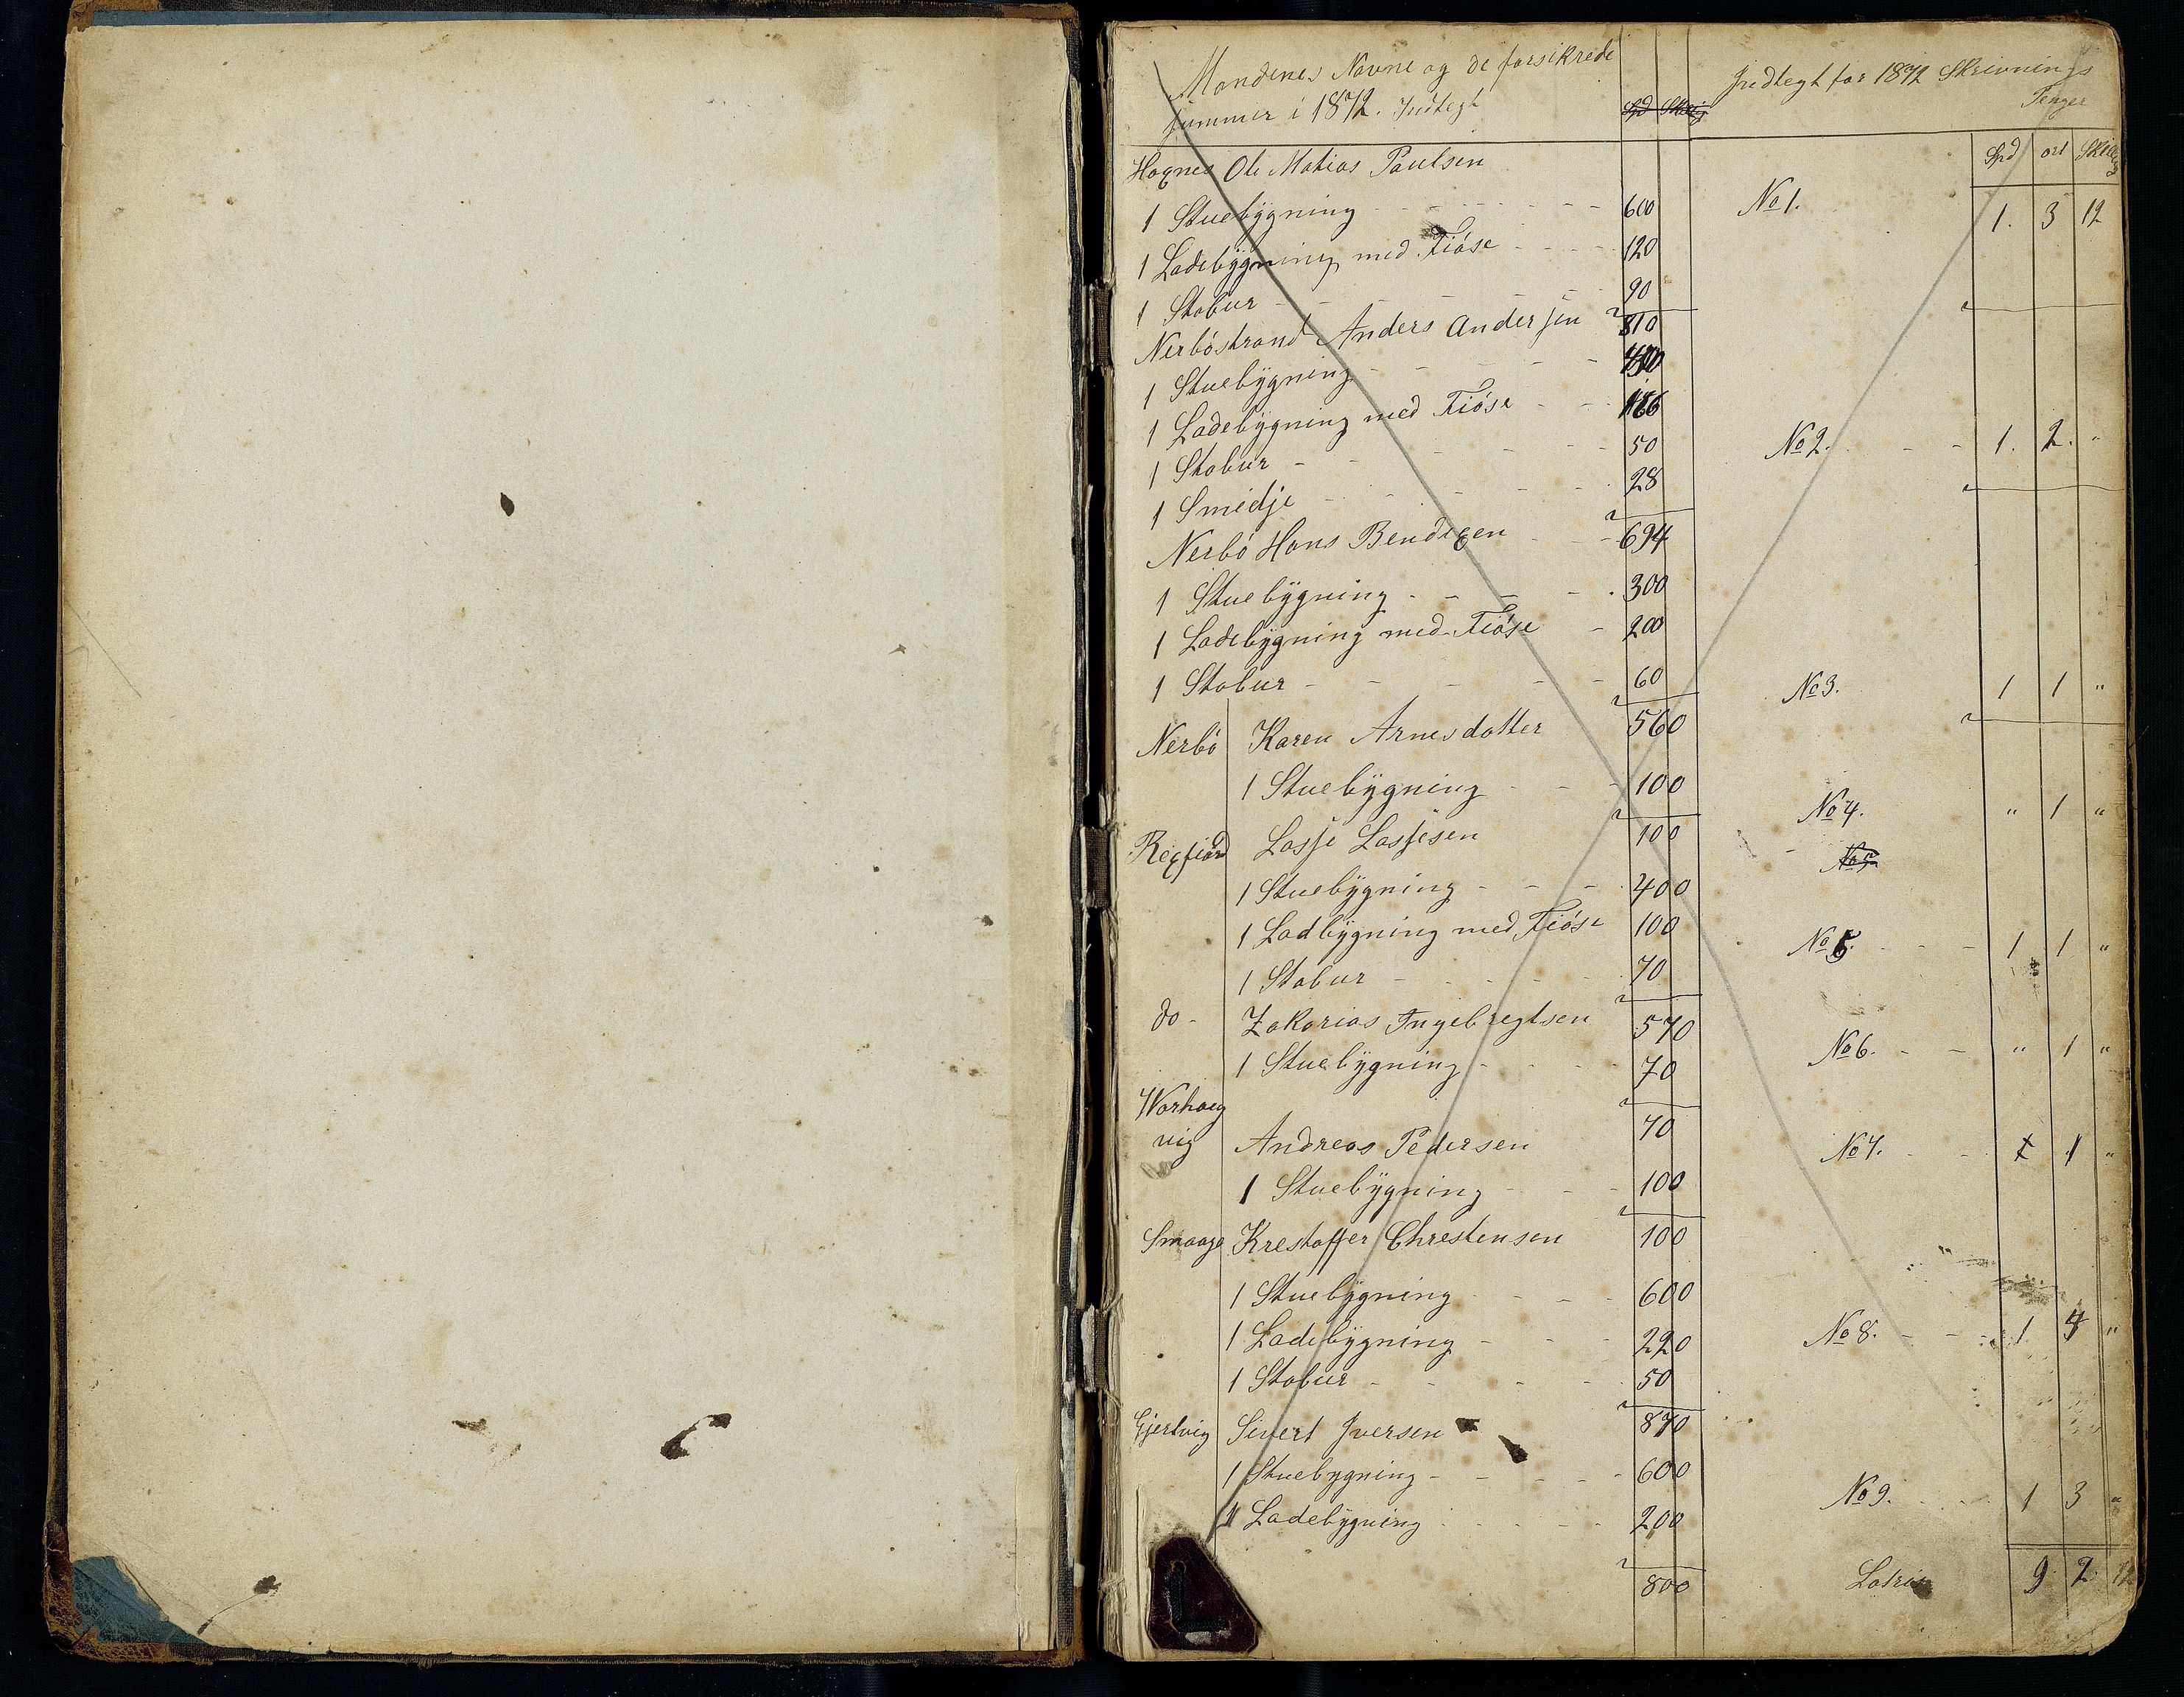 Mandenes Navne og de forsikrede
summer i 1872. Indtegt Spd Skillig Indtegt for 1872 Skrivnings
Penger
Spd ort Skilling
Hognes Ole Matias Paulsen
1 Stuebÿgning - - - - - 600 No 1. 1. 3 12
1 Ladebÿgning med Fiöse - - - 120
1 Stabur - - - - - 90
Nerböstrand Anders Andersen 810
1 Stuebÿgning - - - -
1 Ladebÿgning med Fiöse - -
1 Stabur - - - - - 50 No 2. - - 1. 2. "
1 Smidje - - - - - 28
Nerbö Hans Bendixen - - 694
1 Stuebÿgning - - - - 300
1 Ladebÿgning med Fiöse - 200
1 Stabur - - - - - 60 No 3. 1 1 "
Nerbö Karen Arnesdatter 560
1 Stuebÿgning - - - 100 No 4. " 1 "
Regfiord Lasse Lassesen 100 No 5
1 Stuebÿgning - - - 400
1 Ladbÿgning med Fiöse 100 No 5. - - - 1 1 "
1 Stabur - - - - 70
do - Zakarias Ingebregtsen 570
1 Stuebÿgning - - - 70 No 6. - - " 1 "
Warhaug
vig Andreas Pedersen 70 No 7. - - 1 1 "
1 Stuebÿgning - - - 100
Smaage Krestoffer Chrestensen 100
1 Stuebÿgning - - - 600
1 Ladebÿgning - - - 220 No 8. - - - 1 4 "
1 Stabur - - - - 50
Gjertvig Sivert Iversen 870
1 Stuebygning - - - - 600 No 9. - - - 1 3 "
1 Ladebÿgning - - - - 200
800 Latris 9 2 12